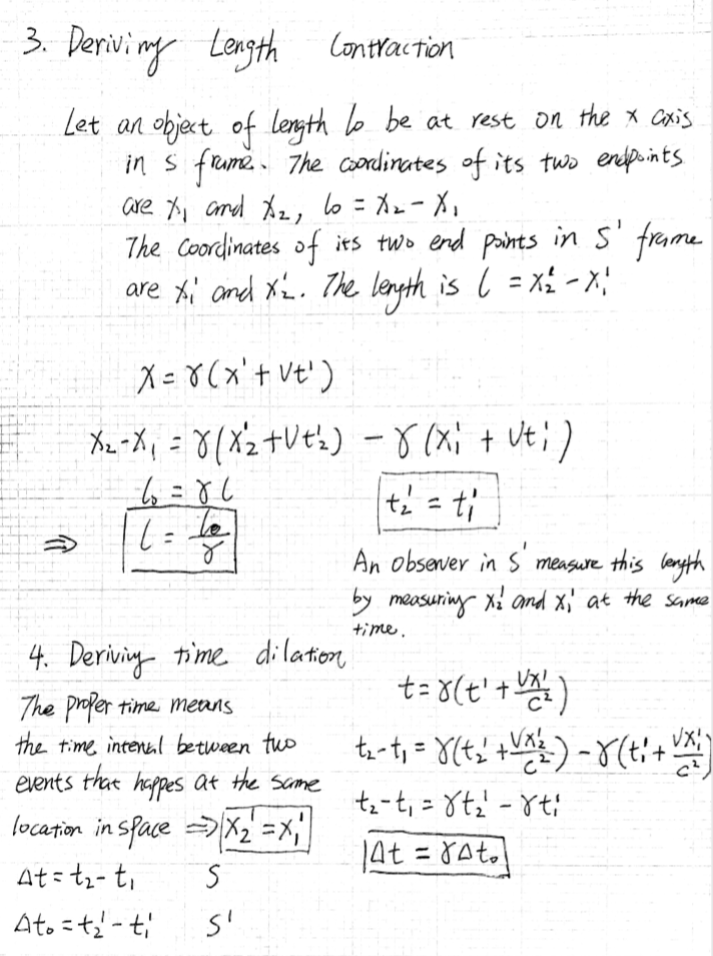 3. Deriving Length Contraction
Let an object of length l₀ be at rest on the x axis
in S frame. The coordinates of its two endpoints
are x₁ and x₂, l₀ = x₂ - x₁
The coordinates of its two end points in S' frame
are x₁' and x₂'. The length is l = x₂' - x₁'
x = γ(x' + Vt')
x₂ - x₁ = γ(x₂' + Vt₂') - γ(x₁' + Vt₁')
l₀ = γl
t₂' = t₁'
⇒ l = l₀/γ
An observer in S' measure this length
by measuring x₂' and x₁' at the same
time.
4. Deriving time dilation
The proper time means
the time interval between two
events that happes at the same
location in space ⇒ x₂' = x₁'
Δt = t₂ - t₁ S
Δt₀ = t₂' - t₁' S'
t = γ(t' + Vx'/c²)
t₂ - t₁ = γ(t₂' + Vx₂'/c²) - γ(t₁' + Vx₁'/c²)
t₂ - t₁ = γt₂' - γt₁'
Δt = γΔt₀